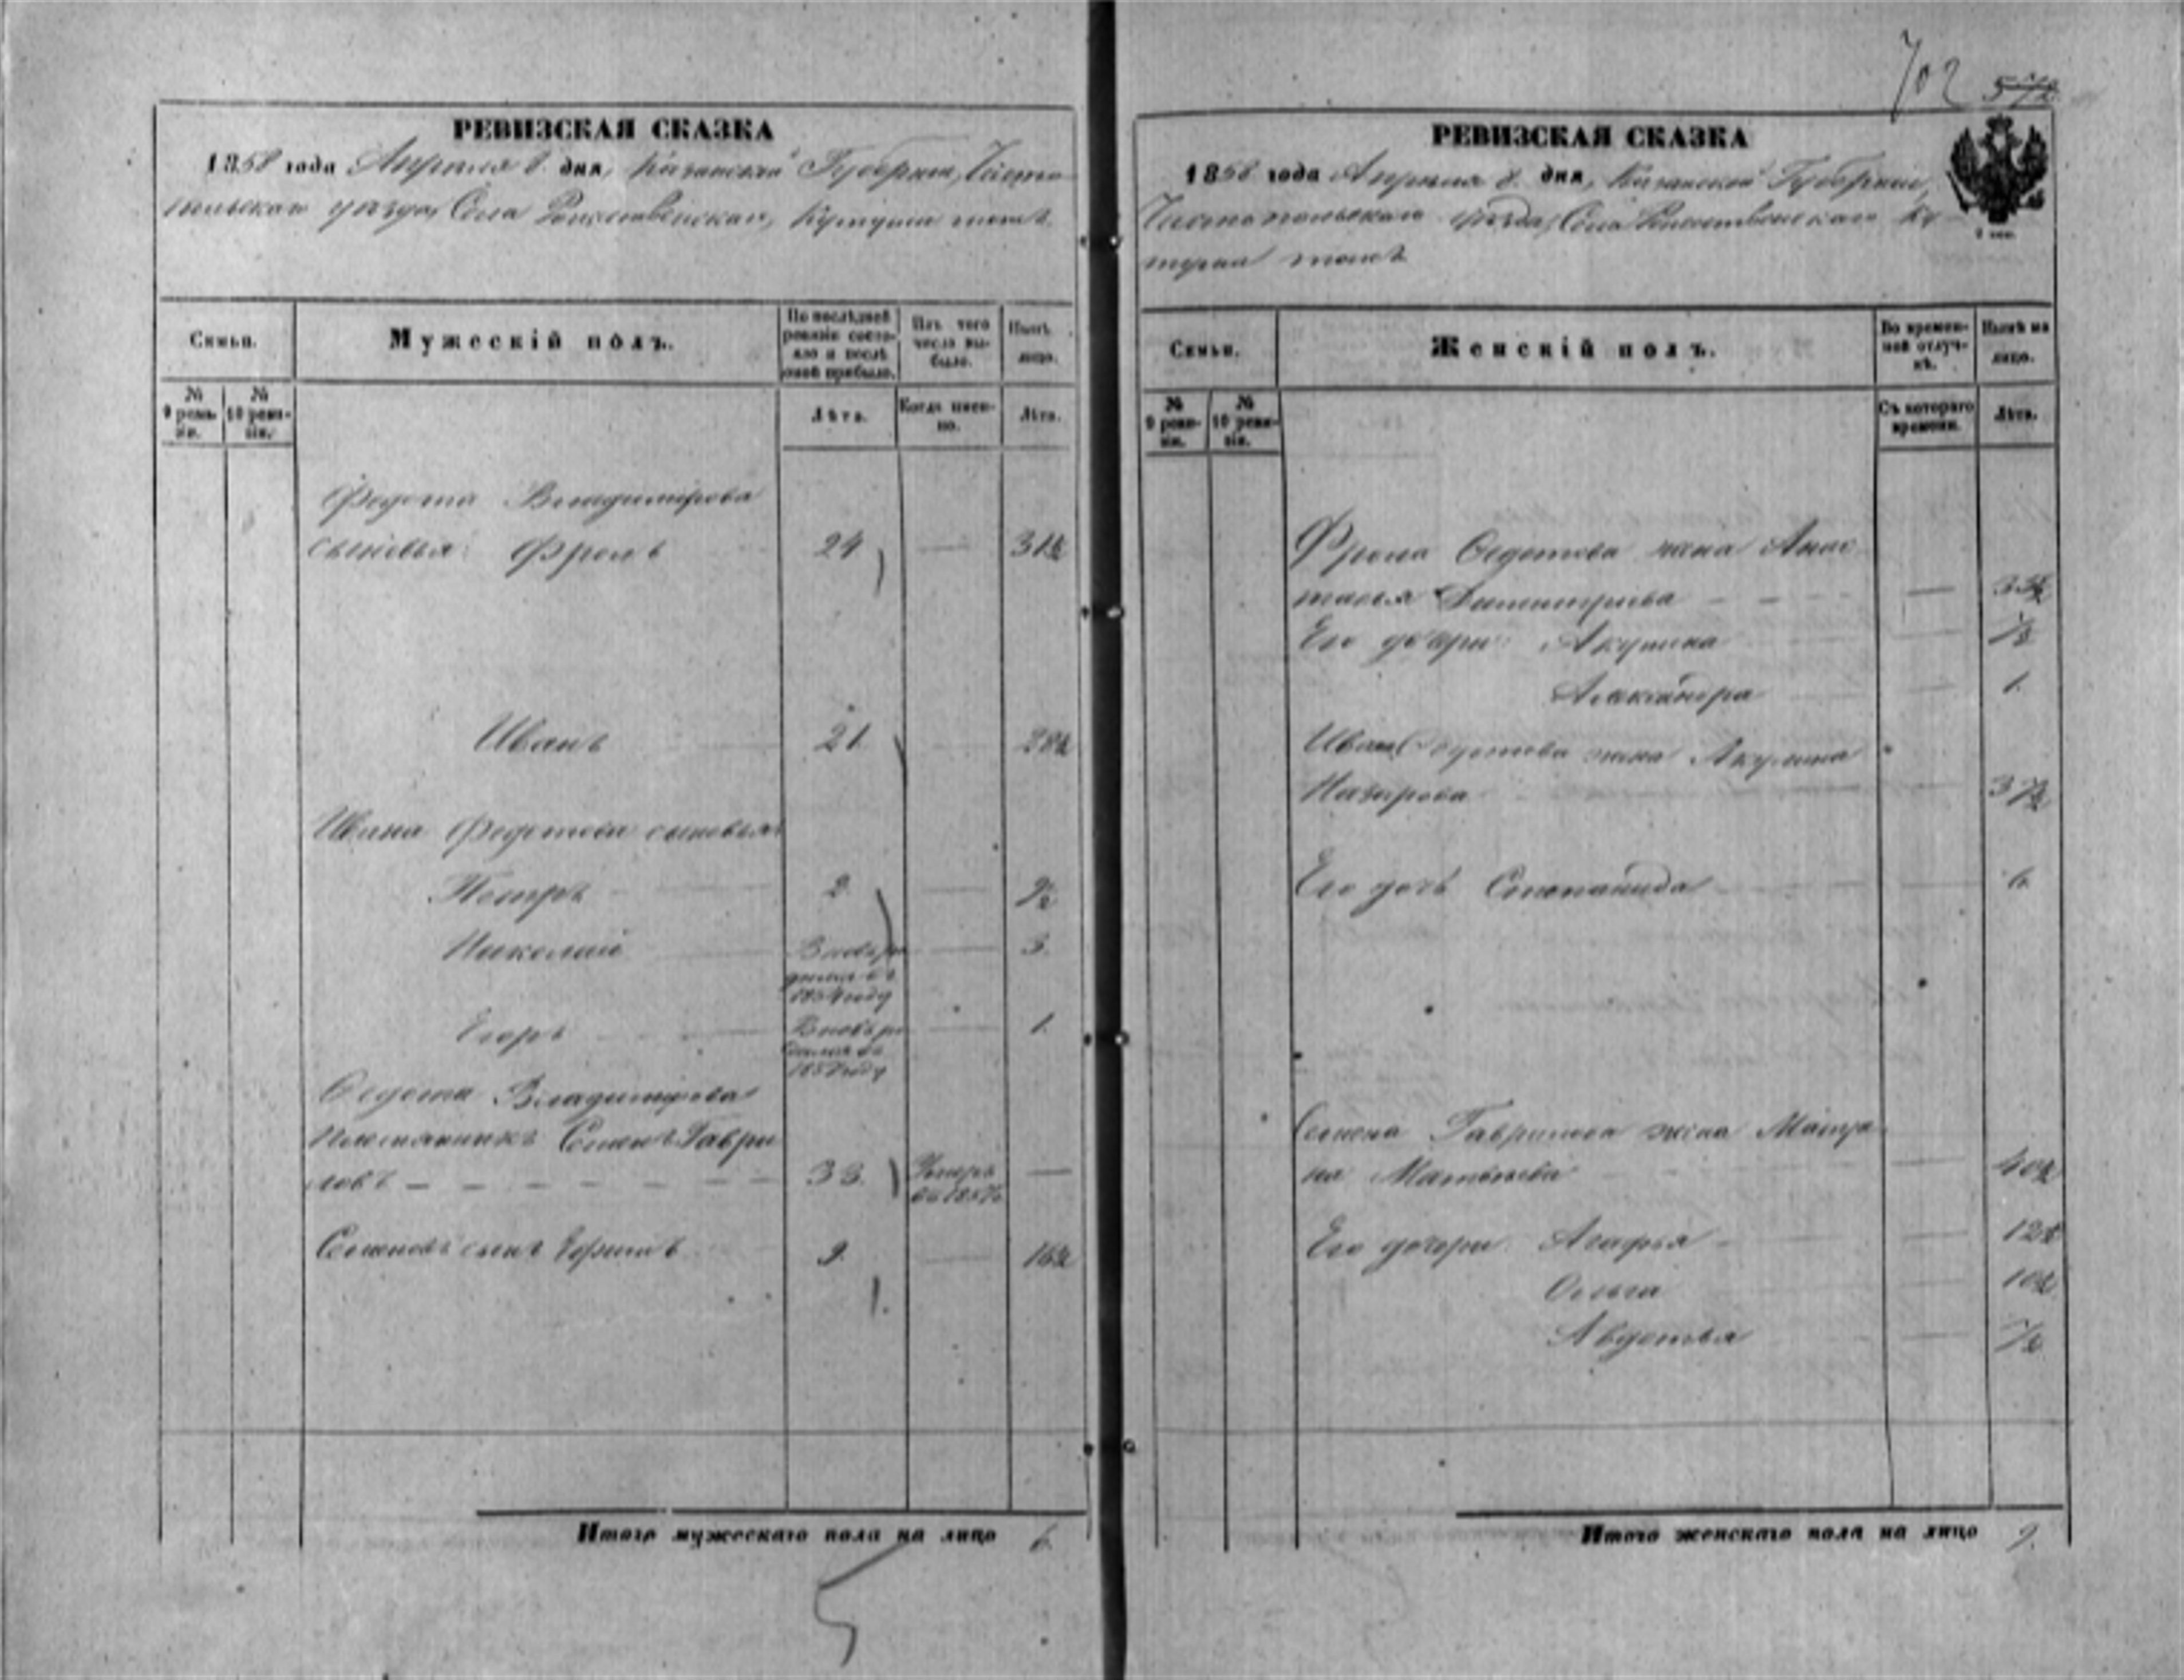 702 572
РЕВИЗСКАЯ СКАЗКА
1858 года Апреля 8 дня, Казанской Губернии, Чисто
польскаго уезда, Села Рождественскаго, Кутуша тожъ.
Семьи.
Мужескій полъ.
По послѣдней ревизіи состояло и послѣ оной прибыло.
Изъ того числа выбыло.
Нынѣ на лицо.
№ 9 ревизіи.
№ 10 ревизіи.
Лѣта.
Когда именно.
Лѣта.
Федота Владимірова
сыновья: Фролъ 24 — 31½
Иванъ 21. 28½
Ивана Федотова сыновья:
Петръ 2. — 9½
Николай Вновь ро — 3.
дился въ
1854 году
Егоръ Вновь ро — 1.
дился въ
1857 году
Федота Владимірова
Племянникъ Семенъ Гаври
ловъ — 33. Умеръ —
въ 1857
Семеновъ сынъ Ефимъ 9. — 16½
1.
Итого мужескаго пола на лицо 6.
РЕВИЗСКАЯ СКАЗКА
1858 года Апреля 8 дня, Казанской Губерніи,
Чистопольскаго уезда, Села Рождественскаго Ку
туша тожъ
Семьи.
Женскій полъ.
Во временной отлучкѣ.
Нынѣ на лицо.
№ 9 ревизіи.
№ 10 ревизіи.
Съ котораго времени.
Лѣта.
Фрола Федотова жена Анас
тасья Димитріева — 33½
Его дочери: Акулина — 7½
Александра — 1.
Ивана Федотова жена Акулина
Назарова 37½
Его дочь Степанида — 6.
Семена Гаврилова жена Матре
на Матвѣева — 40½
Его дочери: Агафья — 12½
Ольга — 10½
Авдотья — 7½
Итого женскаго пола на лицо 9.